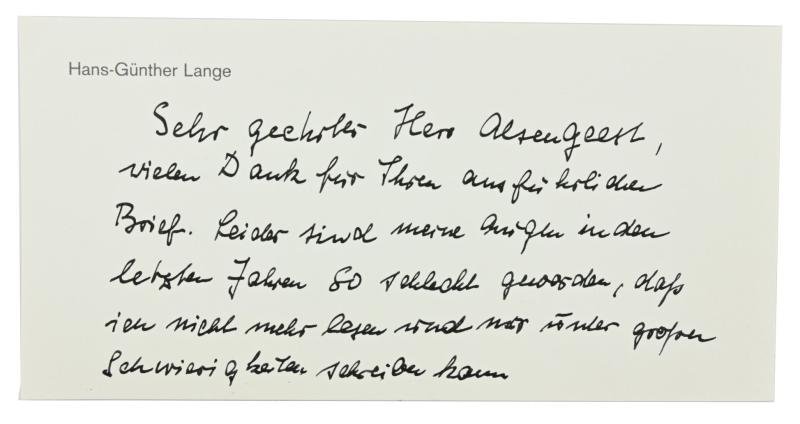 Hans-Günther Lange
Sehr geehrter Herr Alsengeest,
vielen Dank für Ihren ausführlichen
Brief. Leider sind meine Augen in den
letzten Jahren so schlecht geworden, daß
ich nicht mehr lesen und nur unter großen
Schwierigkeiten schreiben kann